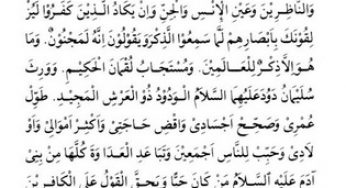 وَالنَّاظِرِيْنَ وَعَيْنِ الْاِنْسِ وَالْجِنِّ وَاِنْ يَكَادُ الَّذِيْنَ كَفَرُوْا لَيُزْ
لِقُوْنَكَ بِاَبْصَارِهِمْ لَمَّا سَمِعُوا الذِّكْرَ وَيَقُوْلُوْنَ اِنَّهُ لَمَجْنُوْنٌ ۞ وَمَا
هُوَ اِلَّا ذِكْرٌ لِلْعَالَمِيْنَ. وَمُسْتَجَابُ لُقْمَانَ الْحَكِيْمِ. وَوَرِثَ
سُلَيْمَانُ دَاوُدَ عَلَيْهِمَا السَّلَامُ الْوَدُوْدُ ذُو الْعَرْشِ الْمَجِيْدِ. طَوِّلْ
عُمْرِيْ وَصَحِّحْ اَجْسَادِيْ وَاقْضِ حَاجَتِيْ وَاَكْثِرْ اَمْوَالِيْ وَاَوْ
لَادِيْ وَحَبِّبْ لِلنَّاسِ اَجْمَعِيْنَ وَتَبَاعَدِ الْعَدَاوَةَ كُلَّهَا مِنْ بَنِيْ
اٰدَمَ عَلَيْهِ السَّلَامُ مَنْ كَانَ حَيًّا وَيَحِقَّ الْقَوْلُ عَلَى الْكَافِرِيْنَ